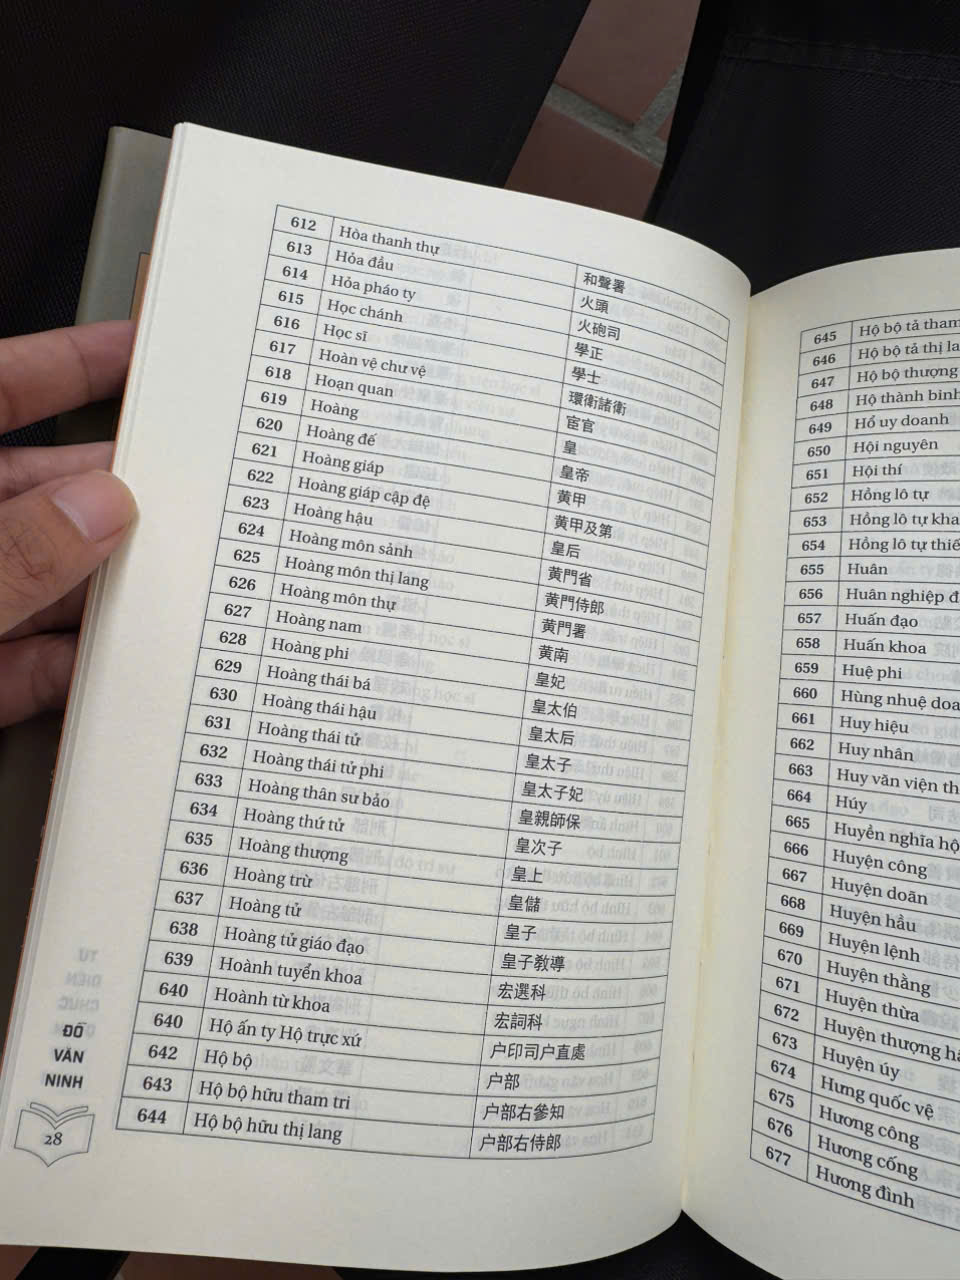 612 Hòa thanh thự 和聲署
613 Hỏa đầu 火頭
614 Hỏa pháo ty 火砲司
615 Học chánh 學正
616 Học sĩ 學士
617 Hoàn vệ chư vệ 環衛諸衛
618 Hoạn quan 宦官
619 Hoàng 皇
620 Hoàng đế 皇帝
621 Hoàng giáp 黄甲
622 Hoàng giáp cập đệ 黄甲及第
623 Hoàng hậu 皇后
624 Hoàng môn sảnh 黄門省
625 Hoàng môn thị lang 黄門侍郎
626 Hoàng môn thự 黄門署
627 Hoàng nam 黄南
628 Hoàng phi 皇妃
629 Hoàng thái bá 皇太伯
630 Hoàng thái hậu 皇太后
631 Hoàng thái tử 皇太子
632 Hoàng thái tử phi 皇太子妃
633 Hoàng thân sư bảo 皇親師保
634 Hoàng thứ tử 皇次子
635 Hoàng thượng 皇上
636 Hoàng trừ 皇儲
637 Hoàng tử 皇子
638 Hoàng tử giáo đạo 皇子教導
639 Hoành tuyển khoa 宏選科
640 Hoành từ khoa 宏詞科
640 Hộ ấn ty Hộ trực xứ 户印司户直處
642 Hộ bộ 户部
643 Hộ bộ hữu tham tri 户部右參知
644 Hộ bộ hữu thị lang 户部右侍郎
ĐỖ
VĂN
NINH
28
645 Hộ bộ tả tham
646 Hộ bộ tả thị la
647 Hộ bộ thượng
648 Hộ thành binh
649 Hổ uy doanh
650 Hội nguyên
651 Hội thí
652 Hồng lô tự
653 Hồng lô tự kha
654 Hồng lô tự thiế
655 Huân
656 Huân nghiệp đ
657 Huấn đạo
658 Huấn khoa
659 Huệ phi
660 Hùng nhuệ doa
661 Huy hiệu
662 Huy nhân
663 Huy văn viện th
664 Húy
665 Huyền nghĩa hộ
666 Huyện công
667 Huyện doãn
668 Huyện hầu
669 Huyện lệnh
670 Huyện thằng
671 Huyện thừa
672 Huyện thượng hầ
673 Huyện úy
674 Hưng quốc vệ
675 Hương công
676 Hương cống
677 Hương đình